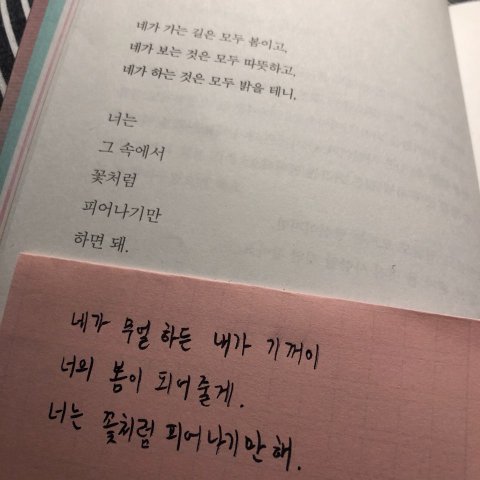 네가 가는 길은 모두 봄이고,
네가 보는 것은 모두 따뜻하고,
네가 하는 것은 모두 밝을 테니.
너는
그 속에서
꽃처럼
피어나기만
하면 돼.
네가 무얼 하든 내가 기꺼이
너의 봄이 되어줄게.
너는 꽃처럼 피어나기만 해.